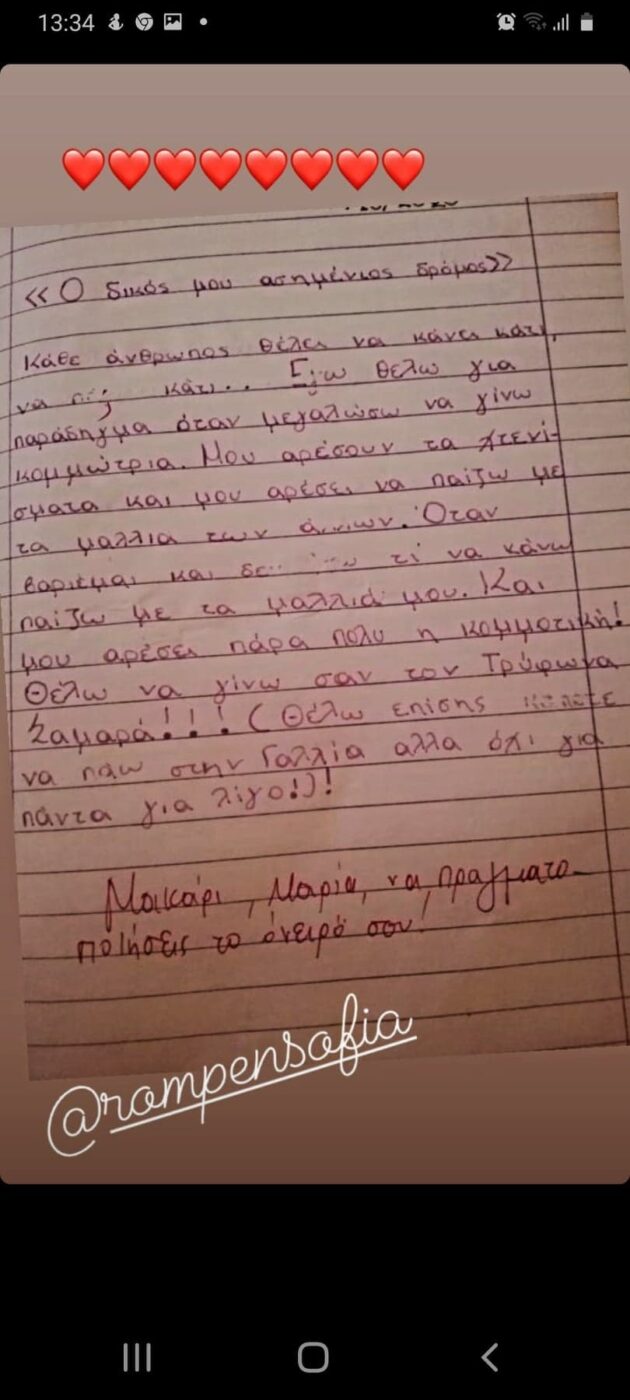 13:34
«Ο δικός μου ασημένιος δρόμος»
Κάθε άνθρωπος θέλει να κάνει κάτι,
να κάτι.. Εγω θελω για
παράδηγμα όταν μεγαλώσω να γίνω
κομμώτρια. Μου αρέσουν τα χτενί-
σματα και μου αρέσει να παίζω με
τα μαλλια των Όταν
βαριεμαι και τί να κάνω
παίζω με τα μαλλιά μου. Και
μου αρέσει πάρα πολυ η κομμοτική!
Θέλω να γίνω σαν τον Τρύφωνα
Σαμαρά!!! (Θέλω επίσης
να πάω στην Γαλλία αλλα όχι για
πάντα για λίγο!)!
Μακάρι, Μαρία, να πραγματο-
ποιήσεις το όνειρό σου!
@rompensofia